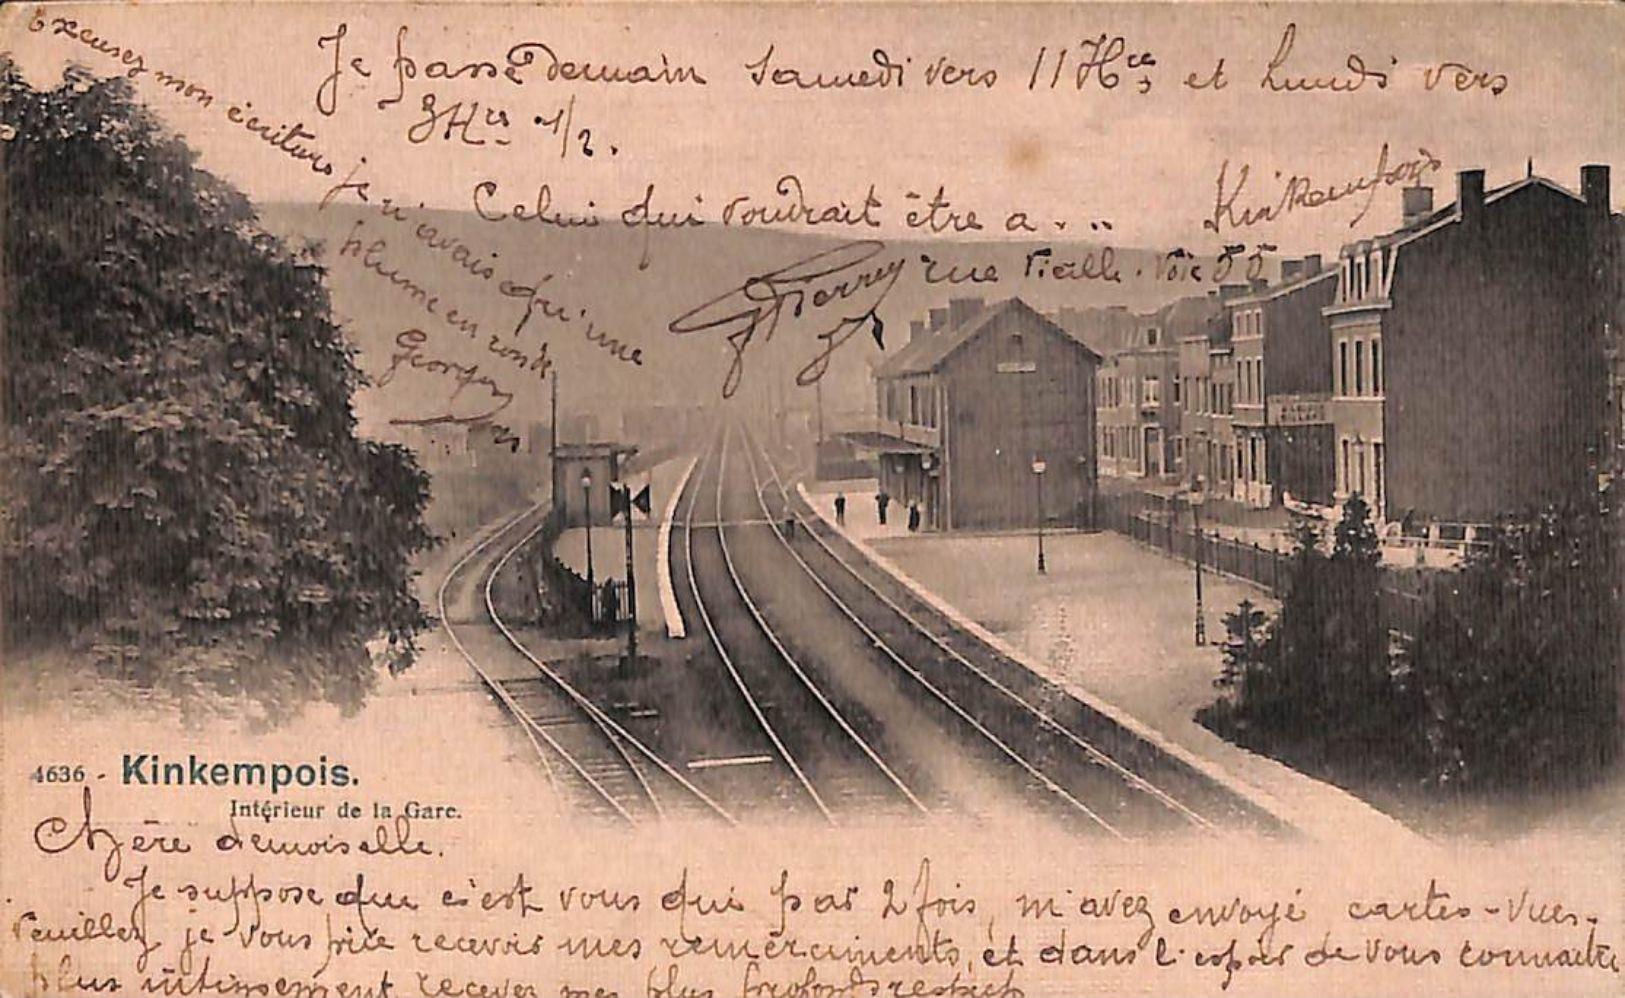 Excusez mon écriture je n'avais qu'une
plume en ronde
Georges
Je passe demain Samedi vers 11 Hres et Lundi vers
3 Hrs 1/2.
Celui qui voudrait être a...
Kinkempois
Pierrey rue Vieille Voie 55
4636 - Kinkempois.
Intérieur de la Gare.
Chère demoiselle.
Je suppose que c'est vous qui par 2 fois, m'avez envoyé cartes-vues.
Veuillez je vous prie recevoir mes remerciments, et dans l'espoir de vous connaitre
plus intimement recevez mes plus profonds respects